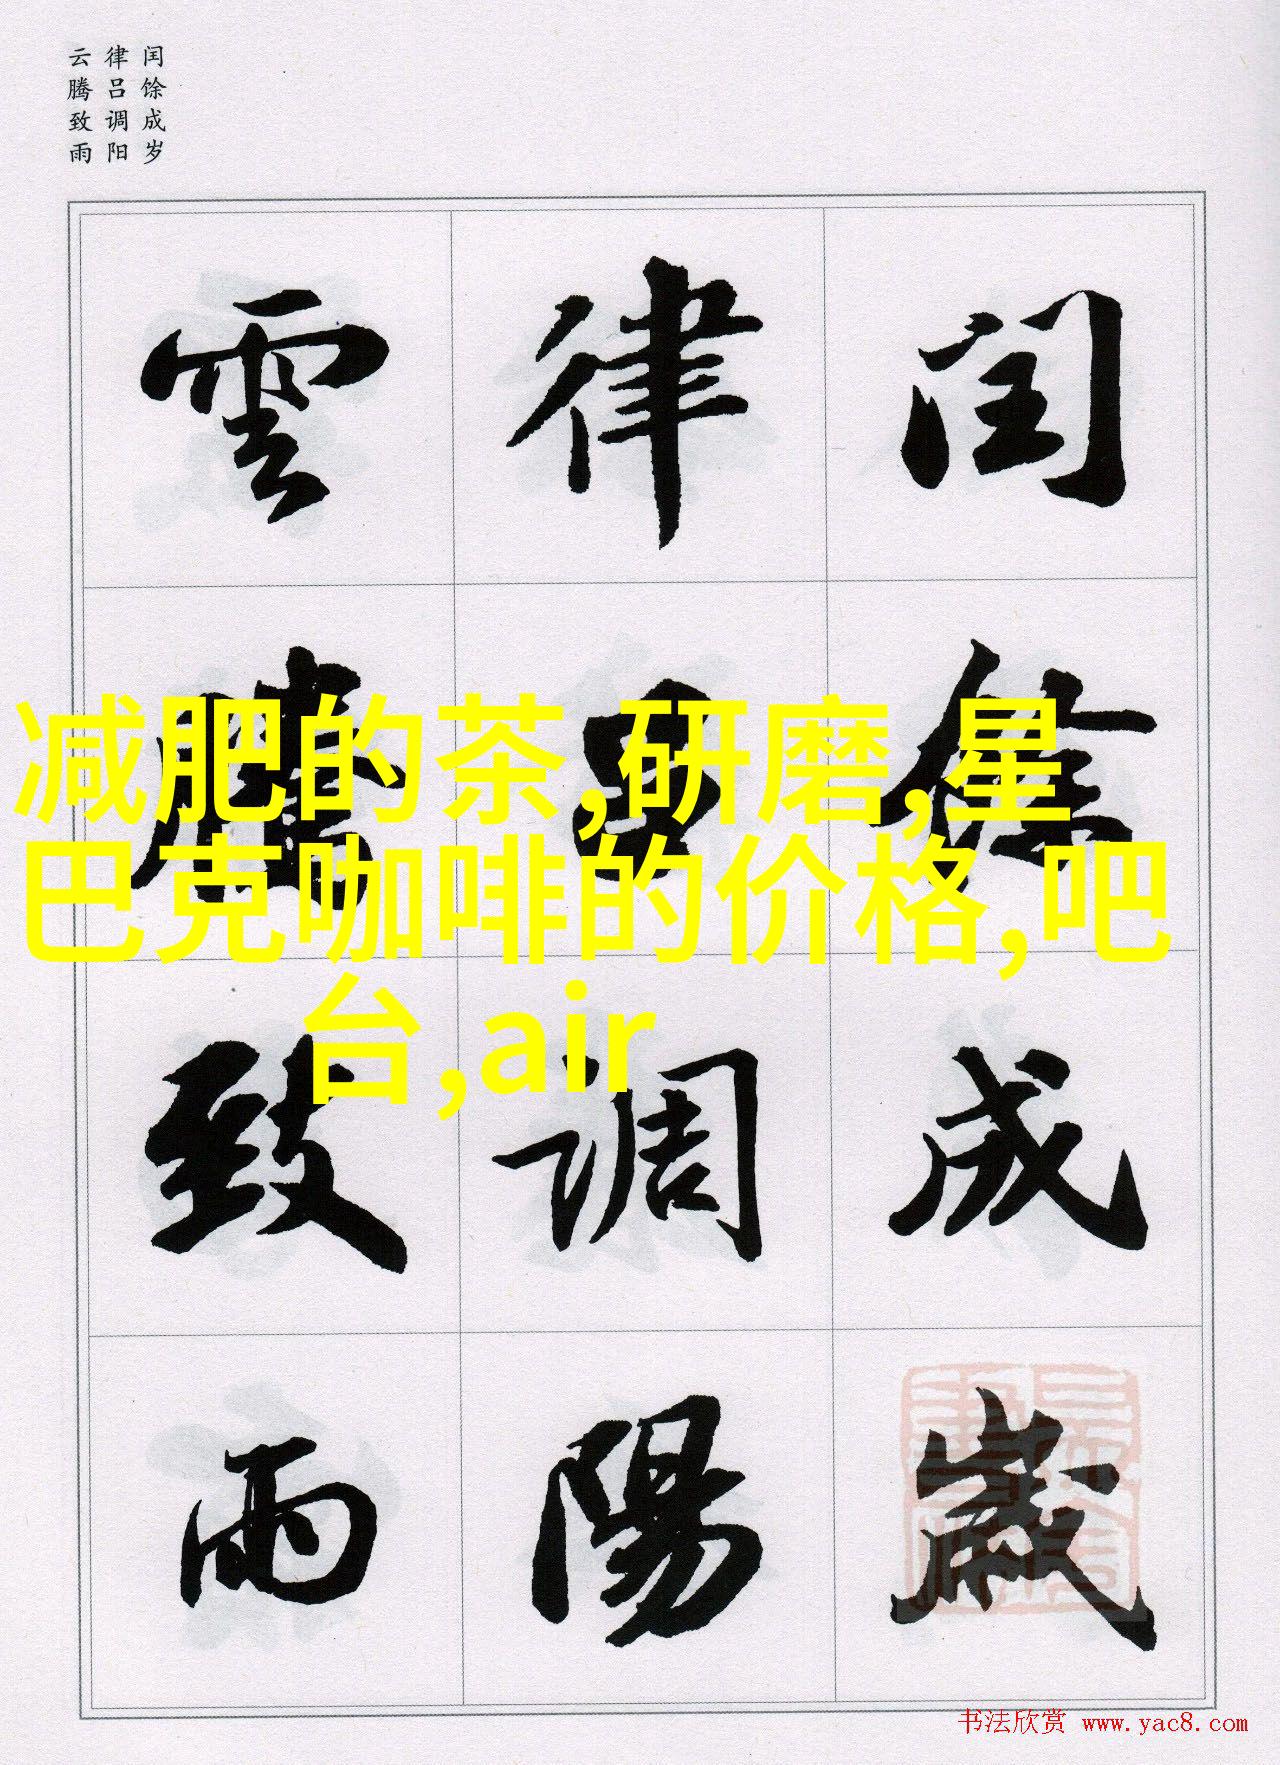 闰馀成岁
律吕调阳
云腾致雨
閏餘成歲
律吕調陽
雲騰致雨
减肥的茶,研磨,星
巴克咖啡的价格,吧
台,air
书法欣赏 www.yac8.com